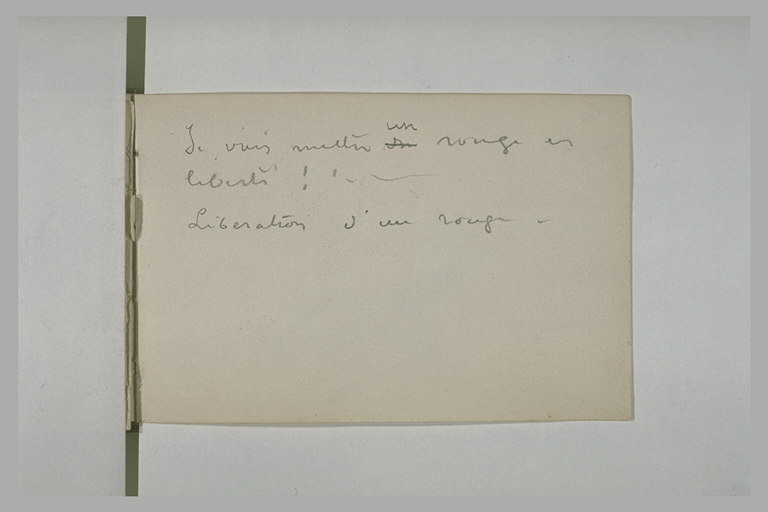 Je vais mettre un rouge en
liberté ! !
Liberation d'un rouge